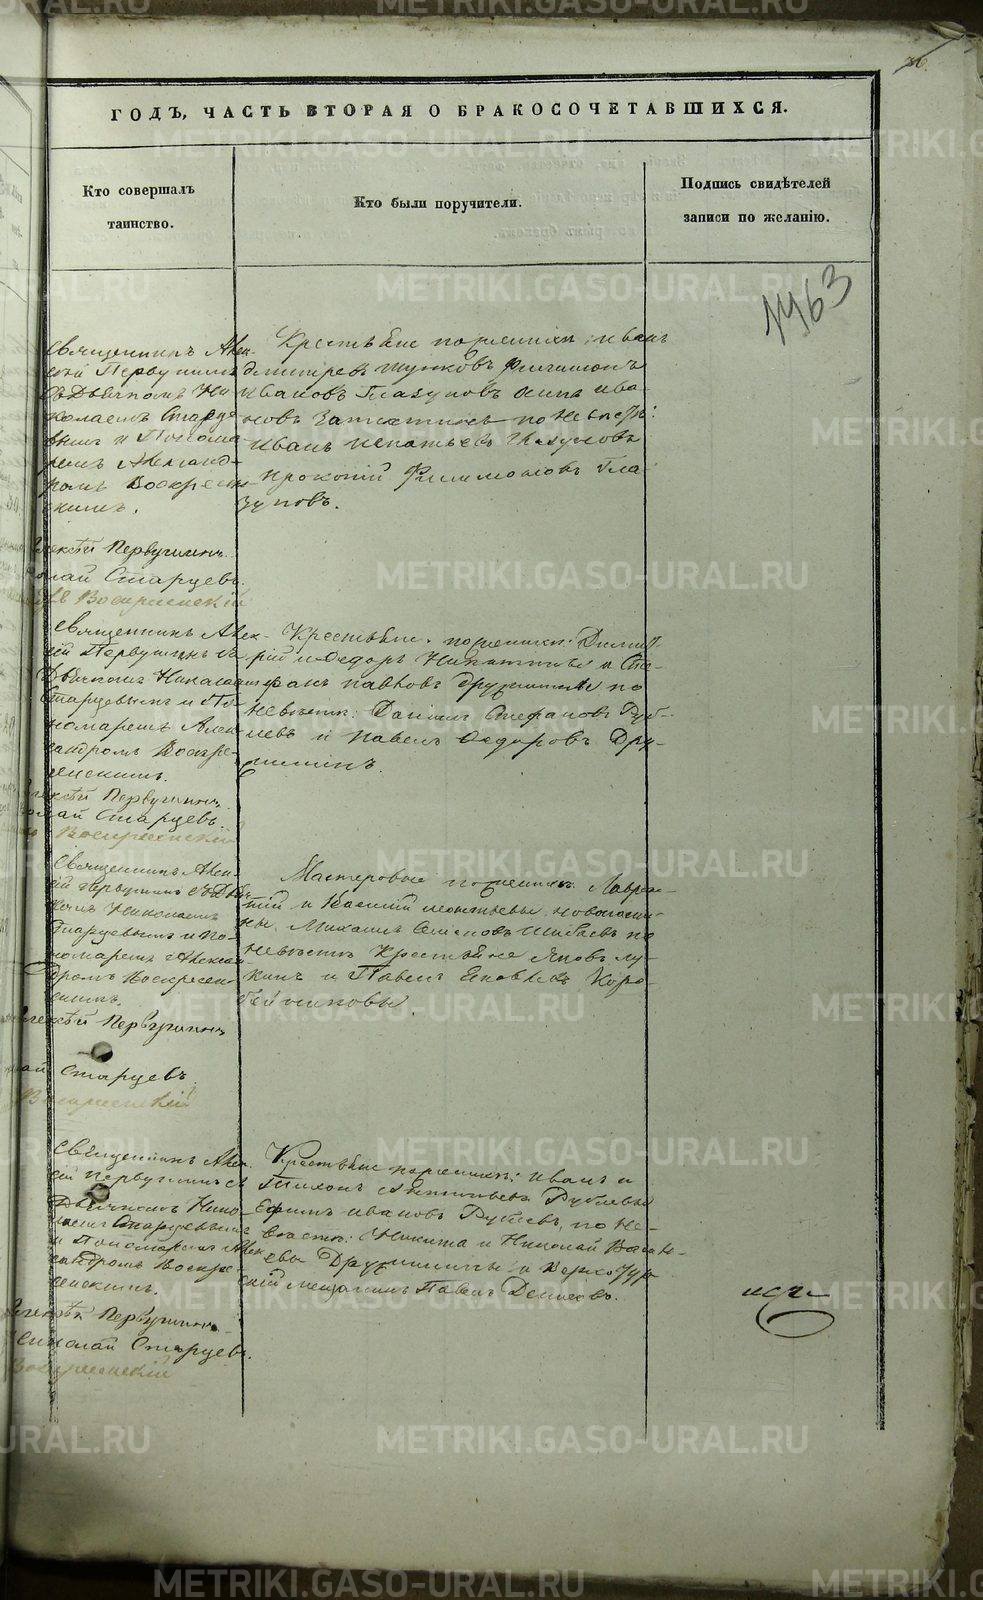 ГОДЪ, ЧАСТЬ ВТОРАЯ О БРАКОСОЧЕТАВШИХСЯ.
Кто совершалъ
таинство.
Кто были поручители.
Подпись свидѣтелей
записи по желанію.
1463
Священникъ Алек-
сѣй Первушинъ
съ Дьячкомъ Ни
колаемъ Старце
вымъ и Понома
ремъ Александ-
ромъ Воскресен
скимъ.
Алексѣй Первушинъ
Старцевъ
Воскресенскій
Крестьяне по женихѣ: Иванъ
Дмитревъ Филимонъ
Ивановъ Глазуновъ Ива
новъ по невѣстѣ:
Иванъ Глазуновъ
Прокопій Филимоновъ Гла
зуновъ.
Священникъ Алек-
сѣй Первушинъ съ
Дьячкомъ Николаемъ
Старцевымъ и По
номаремъ Алек
сандромъ Воскре-
сенскимъ.
Первушинъ
Старцевъ
Воскресенскій
Крестьяне по женихѣ: Димит
рій и Федоръ Никитины и Сте
фанъ Павловъ Дружинины по
невѣстѣ: Даніилъ Стефановъ Руб-
левъ и Павелъ Федоровъ Дру-
жининъ.
Священникъ Алек
сѣй Первушинъ съ Дья
комъ Николаемъ
Старцевымъ и По-
номаремъ Алексан
дромъ Воскресен
скимъ.
Алексѣй Первушинъ
Старцевъ
Воскресенскій
Мастеровые по женихѣ: Лаврен-
тій и Василій
Михаилъ по
невѣстѣ Крестьяне Яковъ Лу-
кинъ и Павелъ Яковлевъ Коро-
бейниковы.
Священникъ Алек
сѣй Первушинъ съ
Дьячкомъ Нико-
лаемъ Старцевымъ
и Пономаремъ Алек
сандромъ Воскре-
сенскимъ.
Алексѣй Первушинъ
Николай Старцевъ.
Воскресенскій
Крестьяне по женихѣ: Иванъ и
Тихонъ Рублевы
Ефимъ Ивановъ Рублевъ, по не-
вѣстѣ: Никита и Николай Василь-
евы Дружинины и Верхотур
скій мещанинъ Павелъ
METRIKI.GASO-URAL.RU